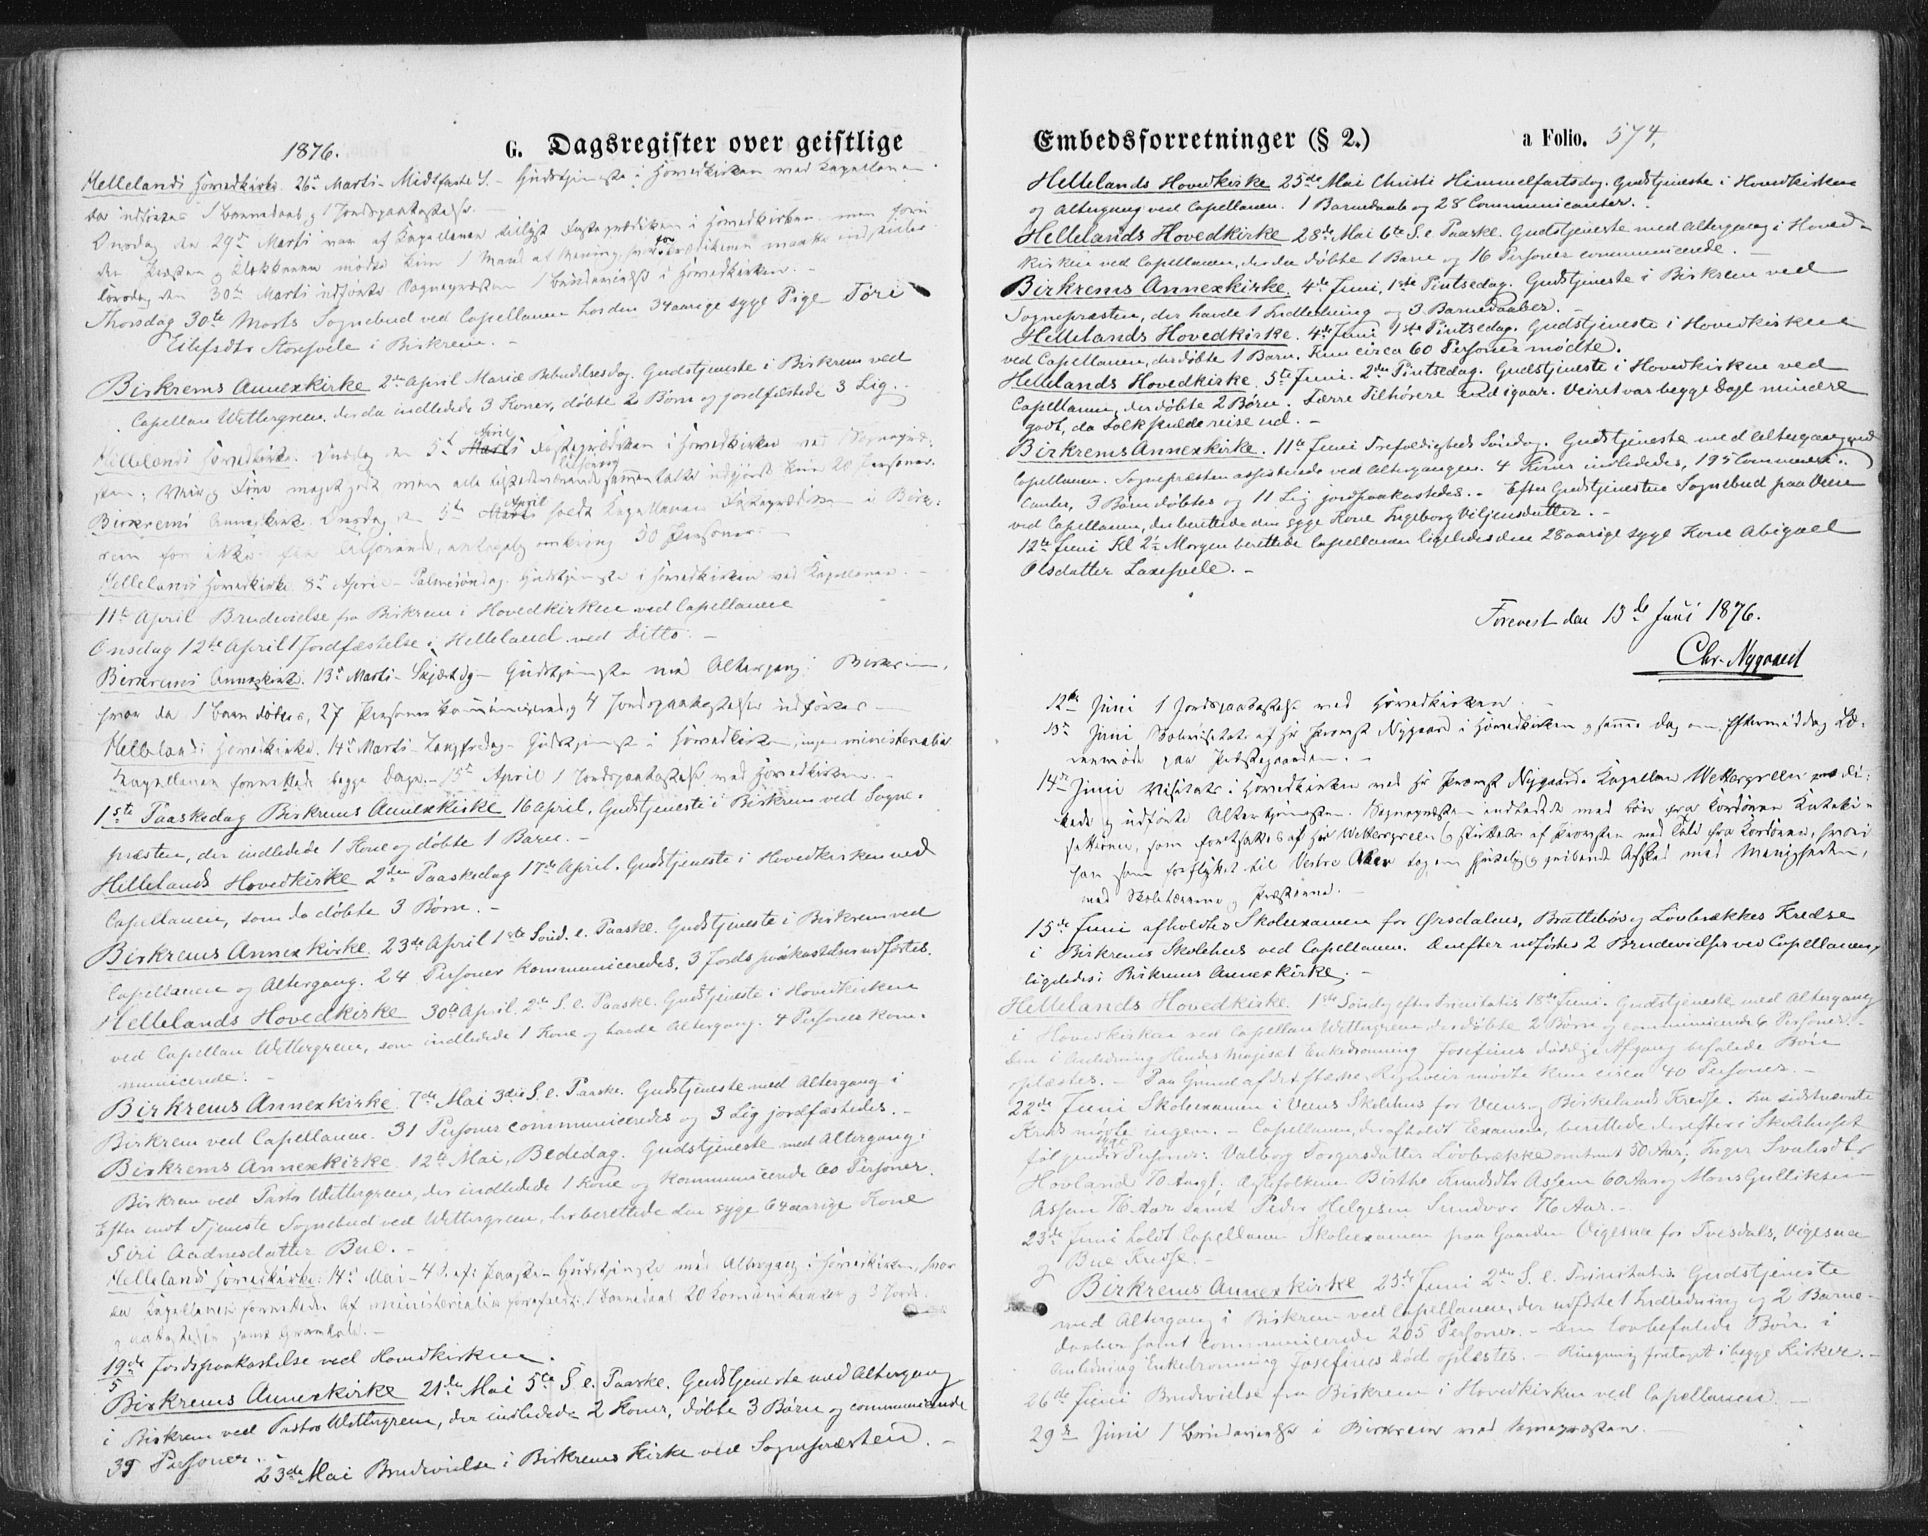 1876.
G. Dagsregister over geistlige
Hellelands Hovedkirke. 26de Marts Midtfaste S. Gudstjeneste i Hovedkirken ved Kapellanen
da udførtes 1 Barnedaab og 1 Jordspaakastelse.
Onsdag den 29de Marts var af Kapellanen tillyst Fasteprædiken i Hovedkirken, men foru
den Præsten og Klokkeren mødte kun 1 Mand af Menigheden, hvorfor Prædikenen maatte indstilles.
Torsdag den 30te Marts udførte Sognepræsten 1 Brudevielse i Hovedkirken.
Thorsdag 30te Marts Sognebud ved Capellanen hos den 34aarige syge Pige Töri
Eilefsdtr Storsvele i Birkrem. -
Birkrems Annexkirke 2den April Mariæ Bebudelsesdag. Gudstjeneste i Birkrem ved
Capellan Wettergreen, der da indledede 3 Koner, døbte 2 Børn og jordfæstede 3 Lig. -
Hellelands Hovedkirke. Onsdag den 5te April Fasteprædiken i Hovedkirken ved Sognepræ-
sten; Veir og Føre meget godt men alle tilstedeværende Tilhørere sammentalte udgjorde kun 20 Personer.
Birkrems Annexkirke. Onsdag den 5te April holdt Kapellanen Fasteprædiken i Birk-
rem for ikke faa Tilhørende, antagelig omkring 30 Personer. -
Hellelands Hovedkirke 8de April - Palmesøndag. Gudstjeneste i Hovedkirken ved Kapellanen. -
11te April Brudevielse fra Birkrem i Hovedkirken ved Capellanen
Onsdag 12te April 1 Jordfæstelse i Helleland ved Ditto. -
Birkrems Annexkirke. 13de Marts - Skjærtdg - Gudstjeneste med Altergang i Birkrem,
hvor da 1 Barn døbtes, 27 Personer kommunicerede og 4 Jordspaakastelser udførtes -
Hellelands Hovedkirke. 14de Marts - Langfredag - Gudstjeneste i Hovedkirken, ingen ministerialia
Kapellanen forrettede begge Dage. - 15de April 1 Jordspaakastelse ved Hovedkirken. -
1ste Paaskedag Birkrems Annexkirke 16 April, Gudstjeneste i Birkrem ved Sogne-
præsten, der indledede 1 Kone og døbte 1 Barn. -
Hellelands Hovedkirke 2den Paaskedag 17de April. Gudstjeneste i Hovedkirken ved
Capellanen, som da døbte 3 Børn. -
Birkrems Annexkirke. 23de April 1ste Sønd. e. Paaske. Gudstjeneste i Birkrem ved
Capellanen og Altergang. 24 Personer kommuniceredes. 3 Jordspaakastelser udførtes.
Hellelands Hovedkirke 30te April. 2de S. e. Paaske. Gudstjeneste i Hovedkirken
ved Capellan Wettergreen, som indledede 1 Kone og havde Altergang. 4 Personer kom-
municerede. -
Birkrems Annexkirke. 7de Mai 3die S. e. Paaske. Gudstjeneste med Altergang i
Birkrem ved Capellanen. 31 Personer communiceredes og 3 Lig jordfæstedes. -
Birkrems Annexkirke. 12te Mai, Bededag. Gudstjeneste med Altergang i
Birkrem ved Pastor Wettergreen, der indledede 1 Kone og kommunicerede 60 Personer.
Efter endt Tjeneste Sognebud ved Wettergreen, der berettede den syge 64aarige Kone
Siri Aadnesdatter Bue. -
Hellelands Hovedkirke. 14de Mai - 4 S. eft. Paaske - Gudstjeneste med Altergang i Hovedkirken, hvor
da Kapellanen forrettede. Af ministerialia forefaldt: 1 Barnedaab 20 Kommunikanter og 3 Jords-
paakastelser
19de/5 Jordspaakastelse ved Hovedkirken.
Birkrems Annexkirke 21de Mai 5te S. e. Paaske. Gudstjeneste med Altergang
i Birkrem ved Pastor Wettergreen, der indledede 2 Koner, døbte 3 Børn og communicerede
35 Personer.
23de Mai Brudevielse i Birkrems Kirke ved Sognepræsten. -
Embedsforretninger (§ 2.)
a Folio. 574.
Hellelands Hovedkirke 25de Mai Christi Himmelfartsdag. Gudstjeneste i Hovedkirken
og Altergang ved Capellanen. 1 Barnedaab og 28 Communicanter.
Hellelands Hovedkirke 28de Mai 6te S. e Paaske. Gudstjeneste med Altergang i Hoved-
kirken ved Capellanen, der da døbte 1 Barn og 16 Personer communicerede. -
Birkrems Annexkirke. 4de Juni, 1ste Pintsedag. Gudstjeneste i Birkrem ved
Sognepræsten, der havde 1 Indledning og 3 Barnedaaber.
Hellelands Hovedkirke. 4de Juni 1ste Pintsedag. Gudstjeneste i Hovedkirken
ved Capellanen, der døbte 1 Barn. Kun circa 60 Personer mødte.
Hellelands Hovedkirke. 5te Juni. 2den Pintsedag. Gudstjeneste i Hovedkirken ved
Capellanen, der døbte 2 Børn. Færre Tilhørere end igaar. Veiret var begge Dage mindre
godt, da Folk skulde reise ud. -
Birkrems Annexkirke. 11te Juni Trefoldigheds Søndag. Gudstjeneste med Altergang ved
Capellanen. Sognepræsten assisterede ved Altergangen. 4 Koner indlededes, 195 Communi-
canter, 3 Børn døbtes og 11 Lig jordpaakastedes. - Efter Gudstjenesten Sognebud paa Veen
ved Capellanen, der berettede den syge Kone Ingeborg Viljensdatter. -
12te Juni Kl 2½ Morgen berettede Capellanen ligeledes den 28aarige syge Kone Abigael
Olsdatter Laxesvele. -
Forevist den 13de Juni 1876.
Chr. Nygaard
12te Juni 1 Jordspaakastelse ved Hovedkirken.
13de Juni Skolevisitats af Hr Provst Nygaard i Hovedkirken og samme Dag om Eftermiddag Læ-
rermøde paa Præstegaarden. -
14de Juni Visitats i Hovedkirken ved Hr Provst Nygaard. Kapellan Wettergreen prædi-
kede og udførte Altertjenesten. Sognepræsten indledede med Bøn fra Kordøren Kateki-
sationen, som fortsattes af Hr Wettergreen og sluttedes af Provsten med Tale fra Kordøren, hvori
han som forflyttet til Vestre Aker tog en hjertelig og gribende Afsked med Menigheden,
med Skolelærerne og Præsterne. -
15de Juni afholdtes Skoleexamen for Ørsdalens, Brattebøs og Lövbrækkes Kredse
i Birkrems Skolehus ved Capellanen. Derefter udførtes 2 Brudevielser ved Capellanen,
ligeledes i Birkrems Annexkirke. -
Hellelands Hovedkirke. 1ste Søndg efter Trinitatis 18de Juni. Gudstjeneste med Altergang
i Hovedkirken ved Capellan Wettergreen, der døbte 2 Børn og communicerede 6 Personer. -
Den i Anledning Hendes Majesæt Enkedronning Josefines dødelige Afgang befalede Bön
oplæstes. - Paa Grund af det stærke Regnveir mødte kun circa 40 Personer. -
22de Juni Skoleexamen i Veens Skolehus for Veens og Birkelands Kredse. Fra sidstnævnte
Kreds mødte ingen. - Capellanen, der afholdt Examen, berettede derefter i Skolehuset
følgende syge Personer: Valborg Torgersdatter Lövbrække omtrent 50 Aar; Inger Svalesdtr
Hovland 70 Aargl; Ægtefolkene Birthe Knudsdtr Assem 60 Aar og Mons Gulliksen
Assem 76 Aar samt Peder Helgesen Sundvor 76 Aar. -
23de Juni holdt Capellanen Skoleexamen paa Gaarden Vigesaa for Tvesdals, Vigesaa
og Bue Kredse. -
Birkrems Annexkirke 25de Juni 2den S. e. Trinitatis Gudstjeneste
med Altergang i Birkrem ved Capellanen, der udførte 1 Indledning og 2 Barne-
daaber samt communicerede 205 Personer. - Den lovbefalede Bön i
Anledning Enkedronning Josefines Død oplæstes. - Ringning foretoges i begge Kirker. -
26de Juni Brudevielse fra Birkrem i Hovedkirken ved Capellanen. -
29de Juni 1 Brudevielse i Birkrem ved Sognepræsten. -